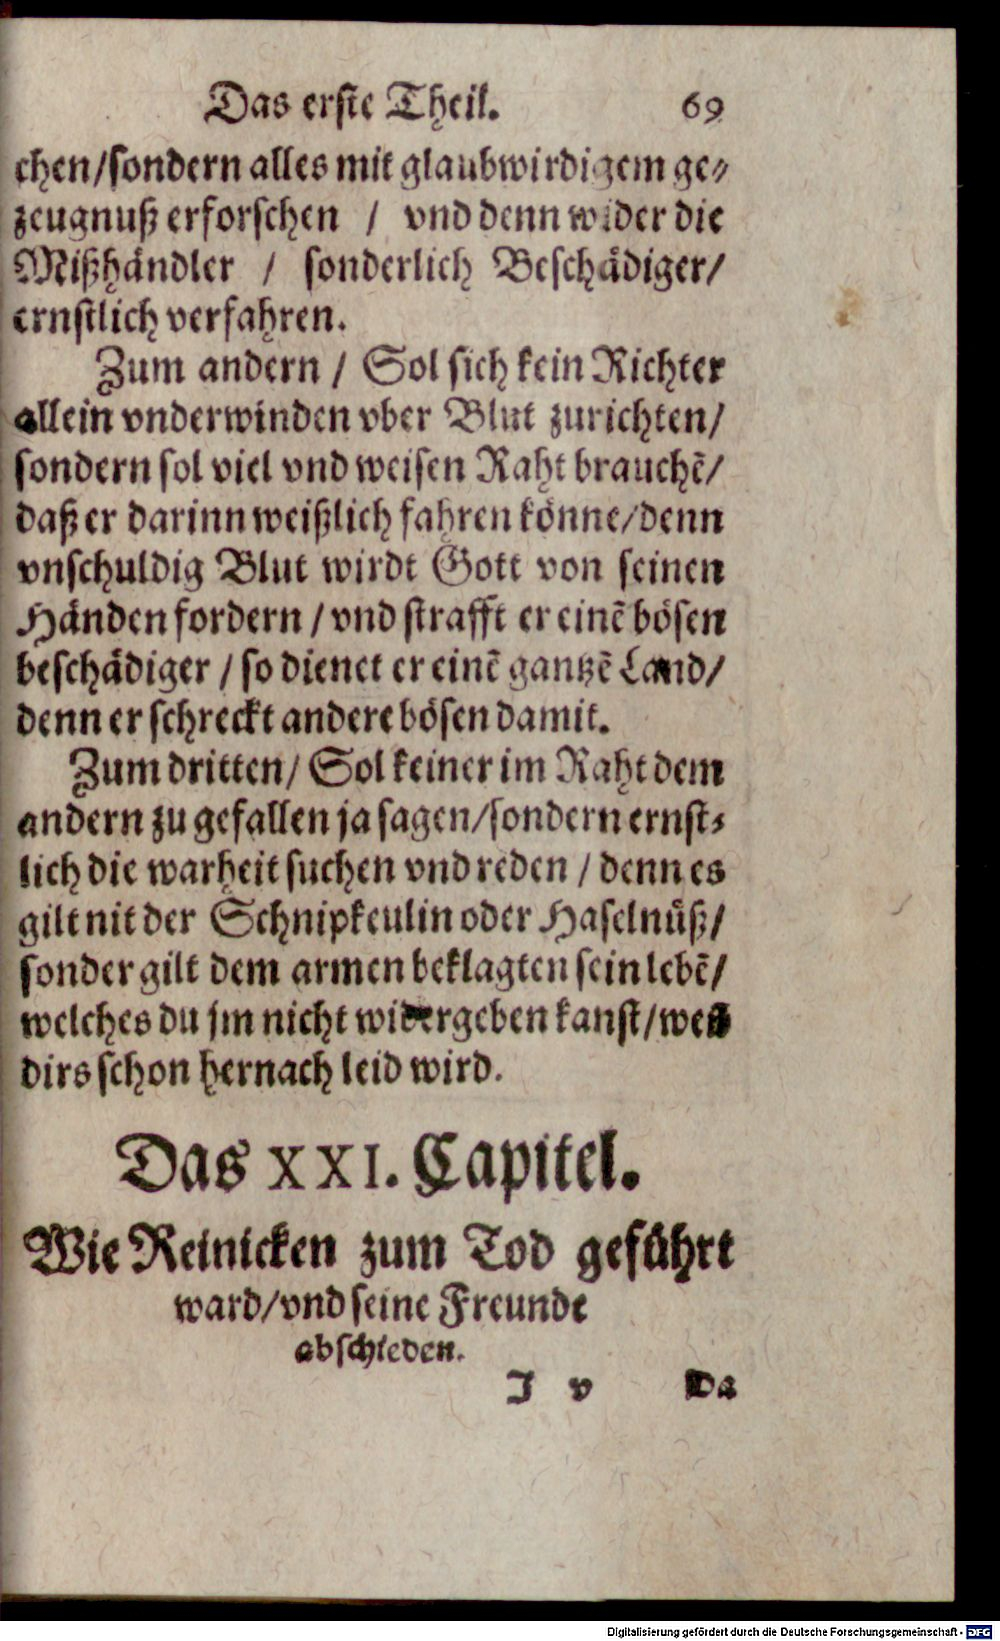 Das erste Theil. 69
chen/sondern alles mit glaubwirdigem ge-
zeugnuß erforschen / vnd denn wider die
Mißhändler / sonderlich Beschädiger/
ernstlich verfahren.
Zum andern / Sol sich kein Richter
allein vnderwinden vber Blut zurichten/
sondern sol viel vnd weisen Raht brauchẽ/
daß er darinn weißlich fahren könne/denn
vnschuldig Blut wirdt Gott von seinen
Händen fordern / vnd strafft er einẽ bösen
beschädiger / so dienet er einẽ gantzẽ Land/
denn er schreckt andere bösen damit.
Zum dritten/ Sol keiner im Raht dem
andern zu gefallen ja sagen/sondern ernst-
lich die warheit suchen vnd reden / denn es
gilt nit der Schnipkeulin oder Haselnüß/
sonder gilt dem armen beklagten sein lebẽ/
welches du jm nicht widergeben kanst/weñ
dirs schon hernach leid wird.
Das XXI. Capitel.
Wie Reinicken zum Tod geführt
ward/vnd seine Freunde
abschieden.
J v Da
Digitalisierung gefördert durch die Deutsche Forschungsgemeinschaft - DFG